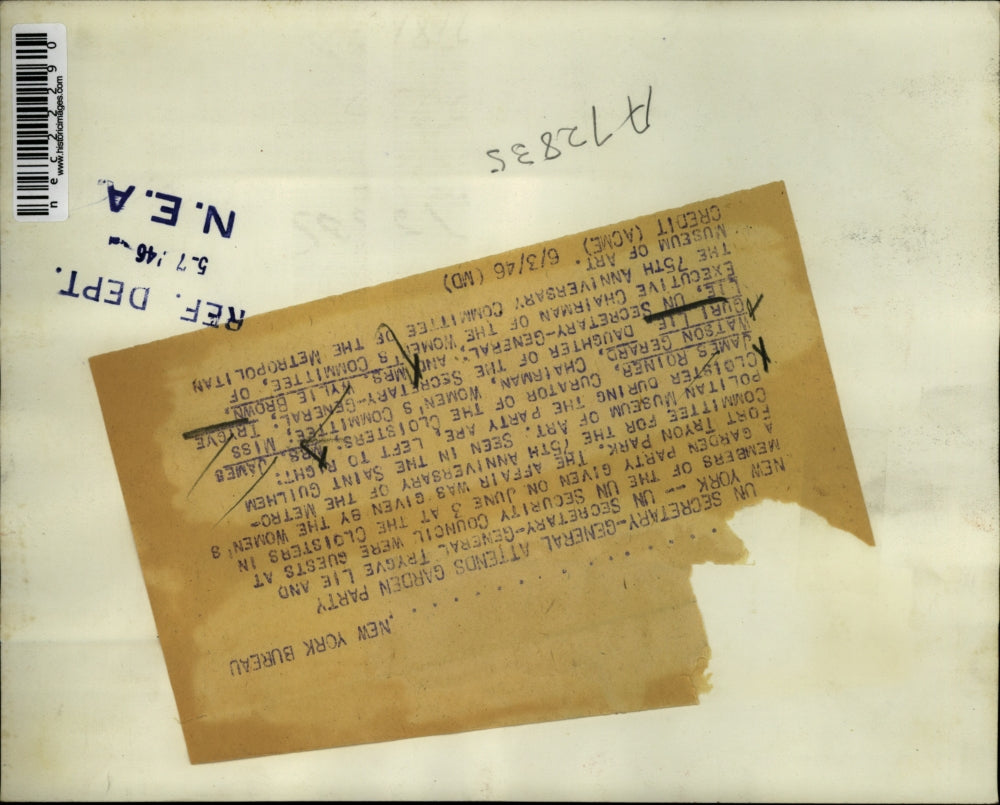 nec22290
www.historicimages.com
A72835
N.E.A.
5-7-'46
REF. DEPT.
NEW YORK BUREAU
. . . . . . . . . . . .
UN SECRETARY-GENERAL ATTENDS GARDEN PARTY
NEW YORK -- UN SECRETARY-GENERAL TRYGVE LIE AND
MEMBERS OF THE UN SECURITY COUNCIL WERE GUESTS AT
A GARDEN PARTY GIVEN ON JUNE 3 AT THE CLOISTERS IN
FORT TRYON PARK. THE AFFAIR WAS GIVEN BY THE WOMEN'S
COMMITTEE FOR THE 75TH ANNIVERSARY OF THE METRO-
POLITAN MUSEUM OF ART. SEEN IN THE SAINT GUILHEM
CLOISTER DURING THE PARTY ARE, LEFT TO RIGHT:
JAMES CURATOR OF THE CLOISTERS; MRS. JAMES
WATSON GERARD, CHAIRMAN, WOMEN'S COMMITTEE; MISS
GURI LIE, DAUGHTER OF THE SECRETARY-GENERAL; TRYGVE
LIE, UN SECRETARY-GENERAL, AND MRS. BROWN,
EXECUTIVE CHAIRMAN OF THE WOMEN'S COMMITTEE, OF
THE 75TH ANNIVERSARY COMMITTEE OF THE METROPOLITAN
MUSEUM OF ART.
CREDIT (ACME) 6/3/46 (WD)